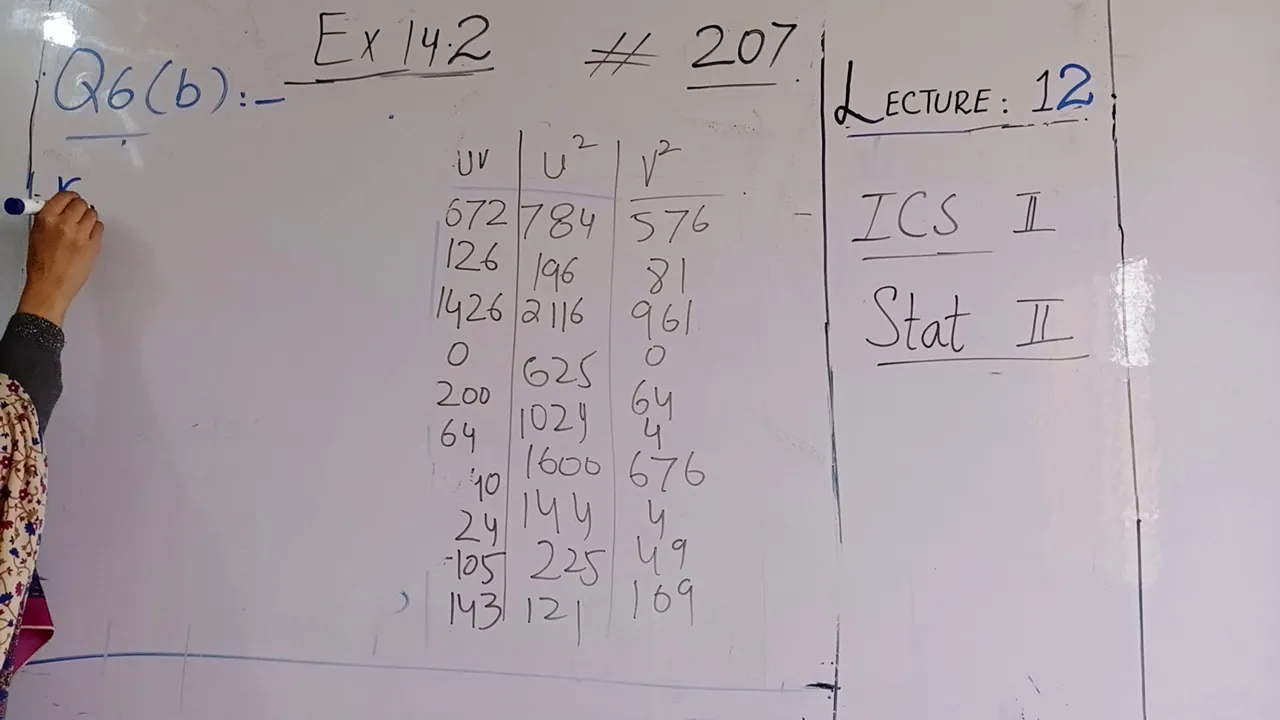 Ex 14.2 # 207
Q6(b):-
r
UV U² V²
672 784 576
126 196 81
1426 2116 961
0 625 0
200 1024 64
64 1600 4
10 144 676
24 225 4
-105 121 49
143 169
LECTURE: 12
ICS II
Stat II